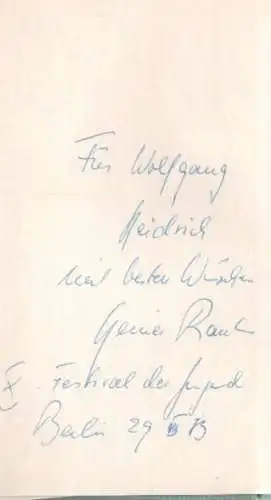 Für Wolfgang
Heidrich
mit besten Wünschen
Heiner Rank
X. Festival der Jugend
Berlin 29 73